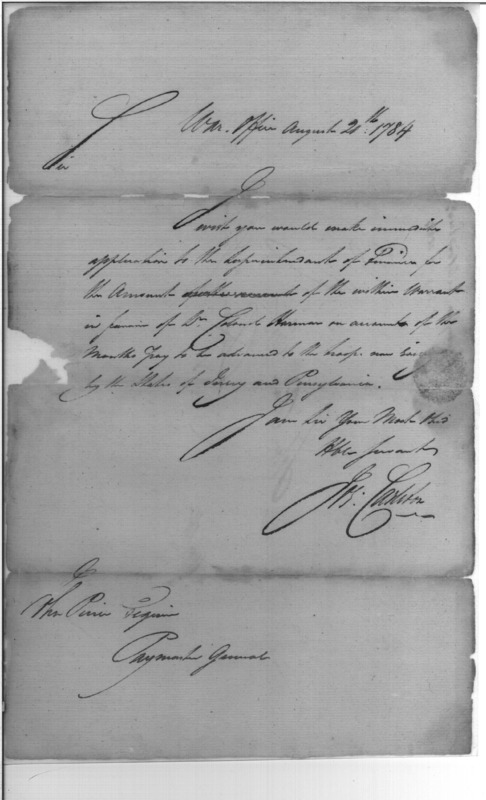 War Office August 20th 1784
Sir
I
wish you would make immediate
application to the Superintendant of Finance for
the Amount of the within Warrant
in favor of Colonel Harmar on account of two
Months Pay to be advanced to the troops now
by the States of Jersey and Pensylvania.
I am Sir Your Most Obd
Hble Servant
Jos: Carleton
John Pierce Esquire
Paymaster General